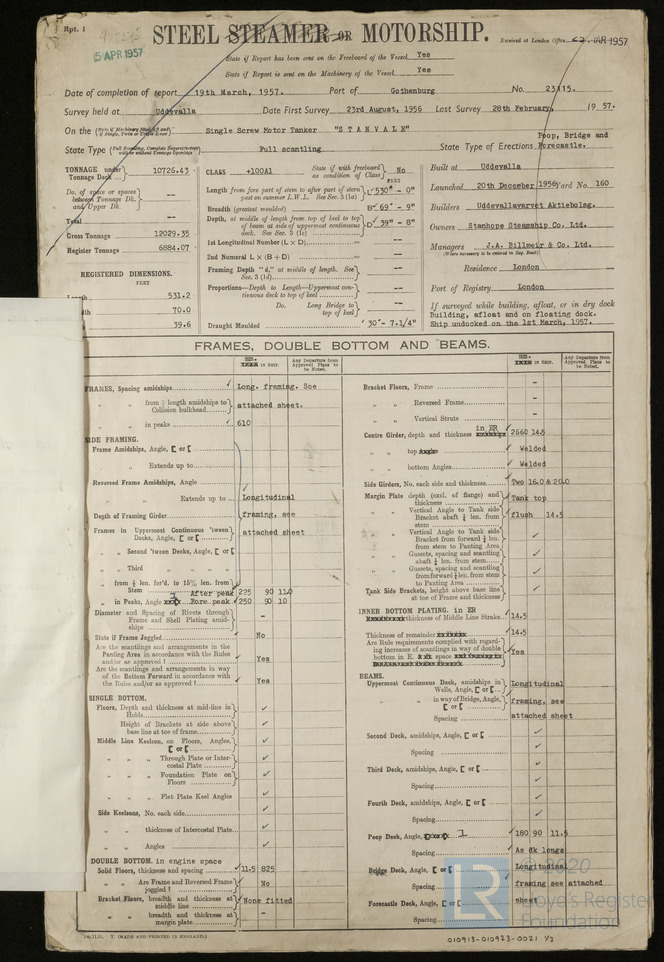 Rpt. 1
5 APR 1957
STEEL STEAMER OR MOTORSHIP.
Received at London Office
State if Report has been sent on the Freeboard of the Vessel Yes
State if Report is sent on the Machinery of the Vessel Yes
Date of completion of report 19th March, 1957. Port of Gothenburg No. 23415.
Survey held at Uddevalla Date First Survey 23rd August, 1956 Last Survey 28th February, 1957.
On the Single Screw Motor Tanker "STANVALE"
State Type Full scantling State Type of Erections Poop, Bridge and Forecastle.
TONNAGE under Tonnage Deck 10726.43
Do. of space or spaces between Tonnage Dk. and Upper Dk. --
Total --
Gross Tonnage 12029.35
Register Tonnage 6884.07
REGISTERED DIMENSIONS.
FEET
531.2
70.0
39.6
CLASS +100A1 State if with freeboard as condition of Class No
FEET
Length from fore part of stem to after part of stern post on summer L.W.L. See Sec. 3 (1a) L 530" - 0"
Breadth (greatest moulded) B 69' - 9"
Depth, at middle of length from top of keel to top of beam at side of uppermost continuous deck. See Sec. 3 (1c) D 39" - 8"
1st Longitudinal Number (L × D) --
2nd Numeral L × (B + D) --
Framing Depth "d," at middle of length. See Sec. 3 (1d) --
Proportions—Depth to Length—Uppermost continuous deck to top of keel --
Do. Long Bridge to top of keel --
Draught Moulded 30"- 7.1/4"
Built at Uddevalla
Launched 20th December 1956 Yard No. 160
Builders Uddevallavarvet Aktiebolag.
Owners Stanhope Steamship Co. Ltd.
Managers J.A. Billmeir & Co. Ltd.
(Where necessary to be entered in Reg. Book)
Residence London
Port of Registry London
If surveyed while building, afloat, or in dry dock
Building, afloat and on floating dock.
Ship undocked on the 1st March, 1957.
FRAMES, DOUBLE BOTTOM AND BEAMS.
Any Departure from Approved Plans to be Noted.
FRAMES, Spacing amidships Long. framing. See
" " from ⅗ length amidships to Collision bulkhead attached sheet.
" " in peaks 610
SIDE FRAMING.
Frame Amidships, Angle, [ or [
" " Extends up to
Reversed Frame Amidships, Angle
" " Extends up to Longitudinal
Depth of Framing Girder framing, see
Frames in Uppermost Continuous 'tween Decks, Angle, [ or [ attached sheet
" " Second 'tween Decks, Angle, [ or [
" " Third " "
" " from ⅗ len. for'd. to 15% len. from Stem After peak 225 90 11.0
" " in Peaks, Angle Fore peak 250 90 10
Diameter and Spacing of Rivets through Frame and Shell Plating amidships -
State if Frame Joggled No
Are the scantlings and arrangements in the Panting Area in accordance with the Rules and/or as approved ? Yes
Are the scantlings and arrangements in way of the Bottom Forward in accordance with the Rules and/or as approved ? Yes
SINGLE BOTTOM.
Floors, Depth and thickness at mid-line in Holds ✓
Height of Brackets at side above base line at toe of frame ✓
Middle Line Keelson, on Floors, Angles, [ or [ ✓
" " " Through Plate or Intercostal Plate ✓
" " " Foundation Plate on Floors ✓
" " " Flat Plate Keel Angles ✓
Side Keelsons, No. each side ✓
" " thickness of Intercostal Plate ✓
" " Angles ✓
DOUBLE BOTTOM. in engine space
Solid Floors, thickness and spacing 11.5 825
" " Are Frame and Reversed Frame joggled ? No
Bracket Floors, breadth and thickness at middle line None fitted
" " breadth and thickness at margin plate -
Bracket Floors, Frame -
" " Reversed Frame -
" " Vertical Strute -
Centre Girder, depth and thickness in ER 2660 14.5
" " top Welded
" " bottom Angles Welded
Side Girders, No. each side and thickness Two 16.0 & 20.0
Margin Plate depth (excl. of flange) and thickness Tank top
" " Vertical Angle to Tank side Bracket abaft ¼ len. from stem flush 14.5
" " Vertical Angle to Tank side Bracket from forward ¼ len. from stem to Panting Area ✓
" " Gussets, spacing and scantling abaft ¼ len. from stem ✓
" " Gussets, spacing and scantling from forward ¼ len. from stem to Panting Area ✓
Tank Side Brackets, height above base line at toe of Frame and thickness ✓
INNER BOTTOM PLATING. in ER
thickness of Middle Line Strake 14.5
Thickness of remainder 14.5
Are Rule requirements complied with regarding increases of scantlings in way of double bottom in E. space Yes
BEAMS.
Uppermost Continuous Deck, amidships in Wells, Angle, [ or [ Longitudinal
" " in way of Bridge, Angle, [ or [ framing, see
Spacing attached sheet
Second Deck, amidships, Angle, [ or [ ✓
Spacing ✓
Third Deck, amidships, Angle, [ or [ ✓
Spacing ✓
Fourth Deck, amidships, Angle, [ or [ ✓
Spacing ✓
Poop Deck, Angle 180 90 11.5
Spacing As dk longs
Bridge Deck, Angle, [ or [ Longitudinal
Spacing framing see attached
Forecastle Deck, Angle, [ or [ sheet
Spacing
T. (MADE AND PRINTED IN ENGLAND.)
010913-010923-0021 1/3
© 2020
LR
Lloyd's Register
Foundation